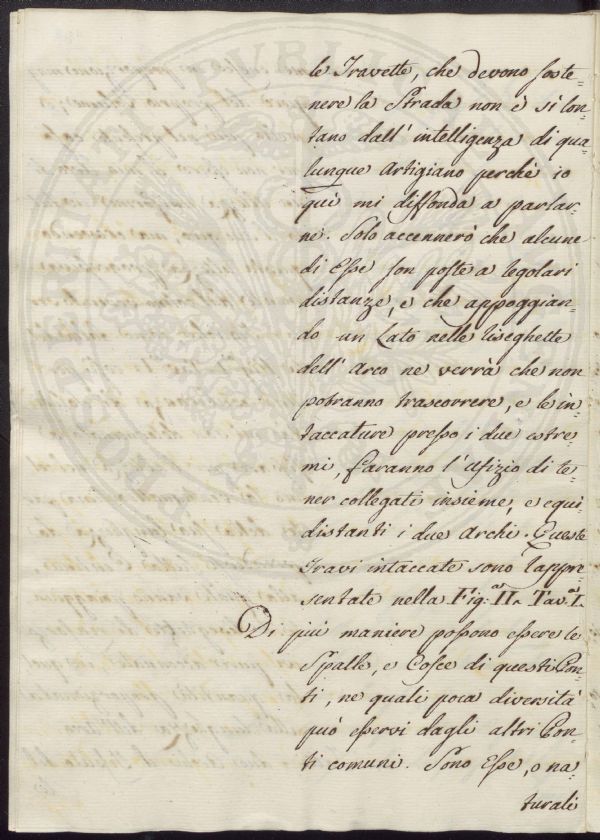 le Travette, che devono soste=
nere la Strada non è sì lon=
tano dall' intelligenza di qua=
lunque Artigiano perchè io
quì mi diffonda a parlar=
ne. Solo accennerò che alcune
di Esse son poste a regolari
distanze, e che appoggian=
do un Lato nelle riseghette
dell' Arco ne verrà che non
potranno trascorrere, e le in=
taccature presso i due estre=
mi, faranno l' Ufizio di te=
ner collegati insieme, e equi=
distanti i due Archi. Queste
Travi intaccate sono rappre=
sentate nella Fig:ª II. Tav.ª I.
Di più maniere possono essere le
Spalle, e Cosce di questi Pon=
ti, ne quali poca diversità
può esservi dagli altri Pon=
ti comuni. Sono Esse, o na=
turali